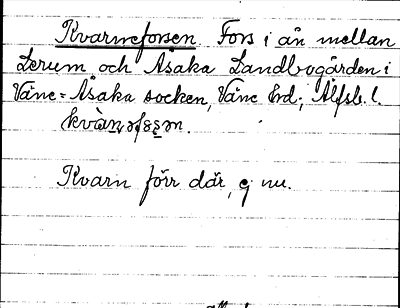 Kvarneforsen Fors i ån mellan
Lerum och Åsaka Landbogården i
Väne-Åsaka socken, Väne hrd; Älfsb. l.
Kvarn förr där, ej nu.